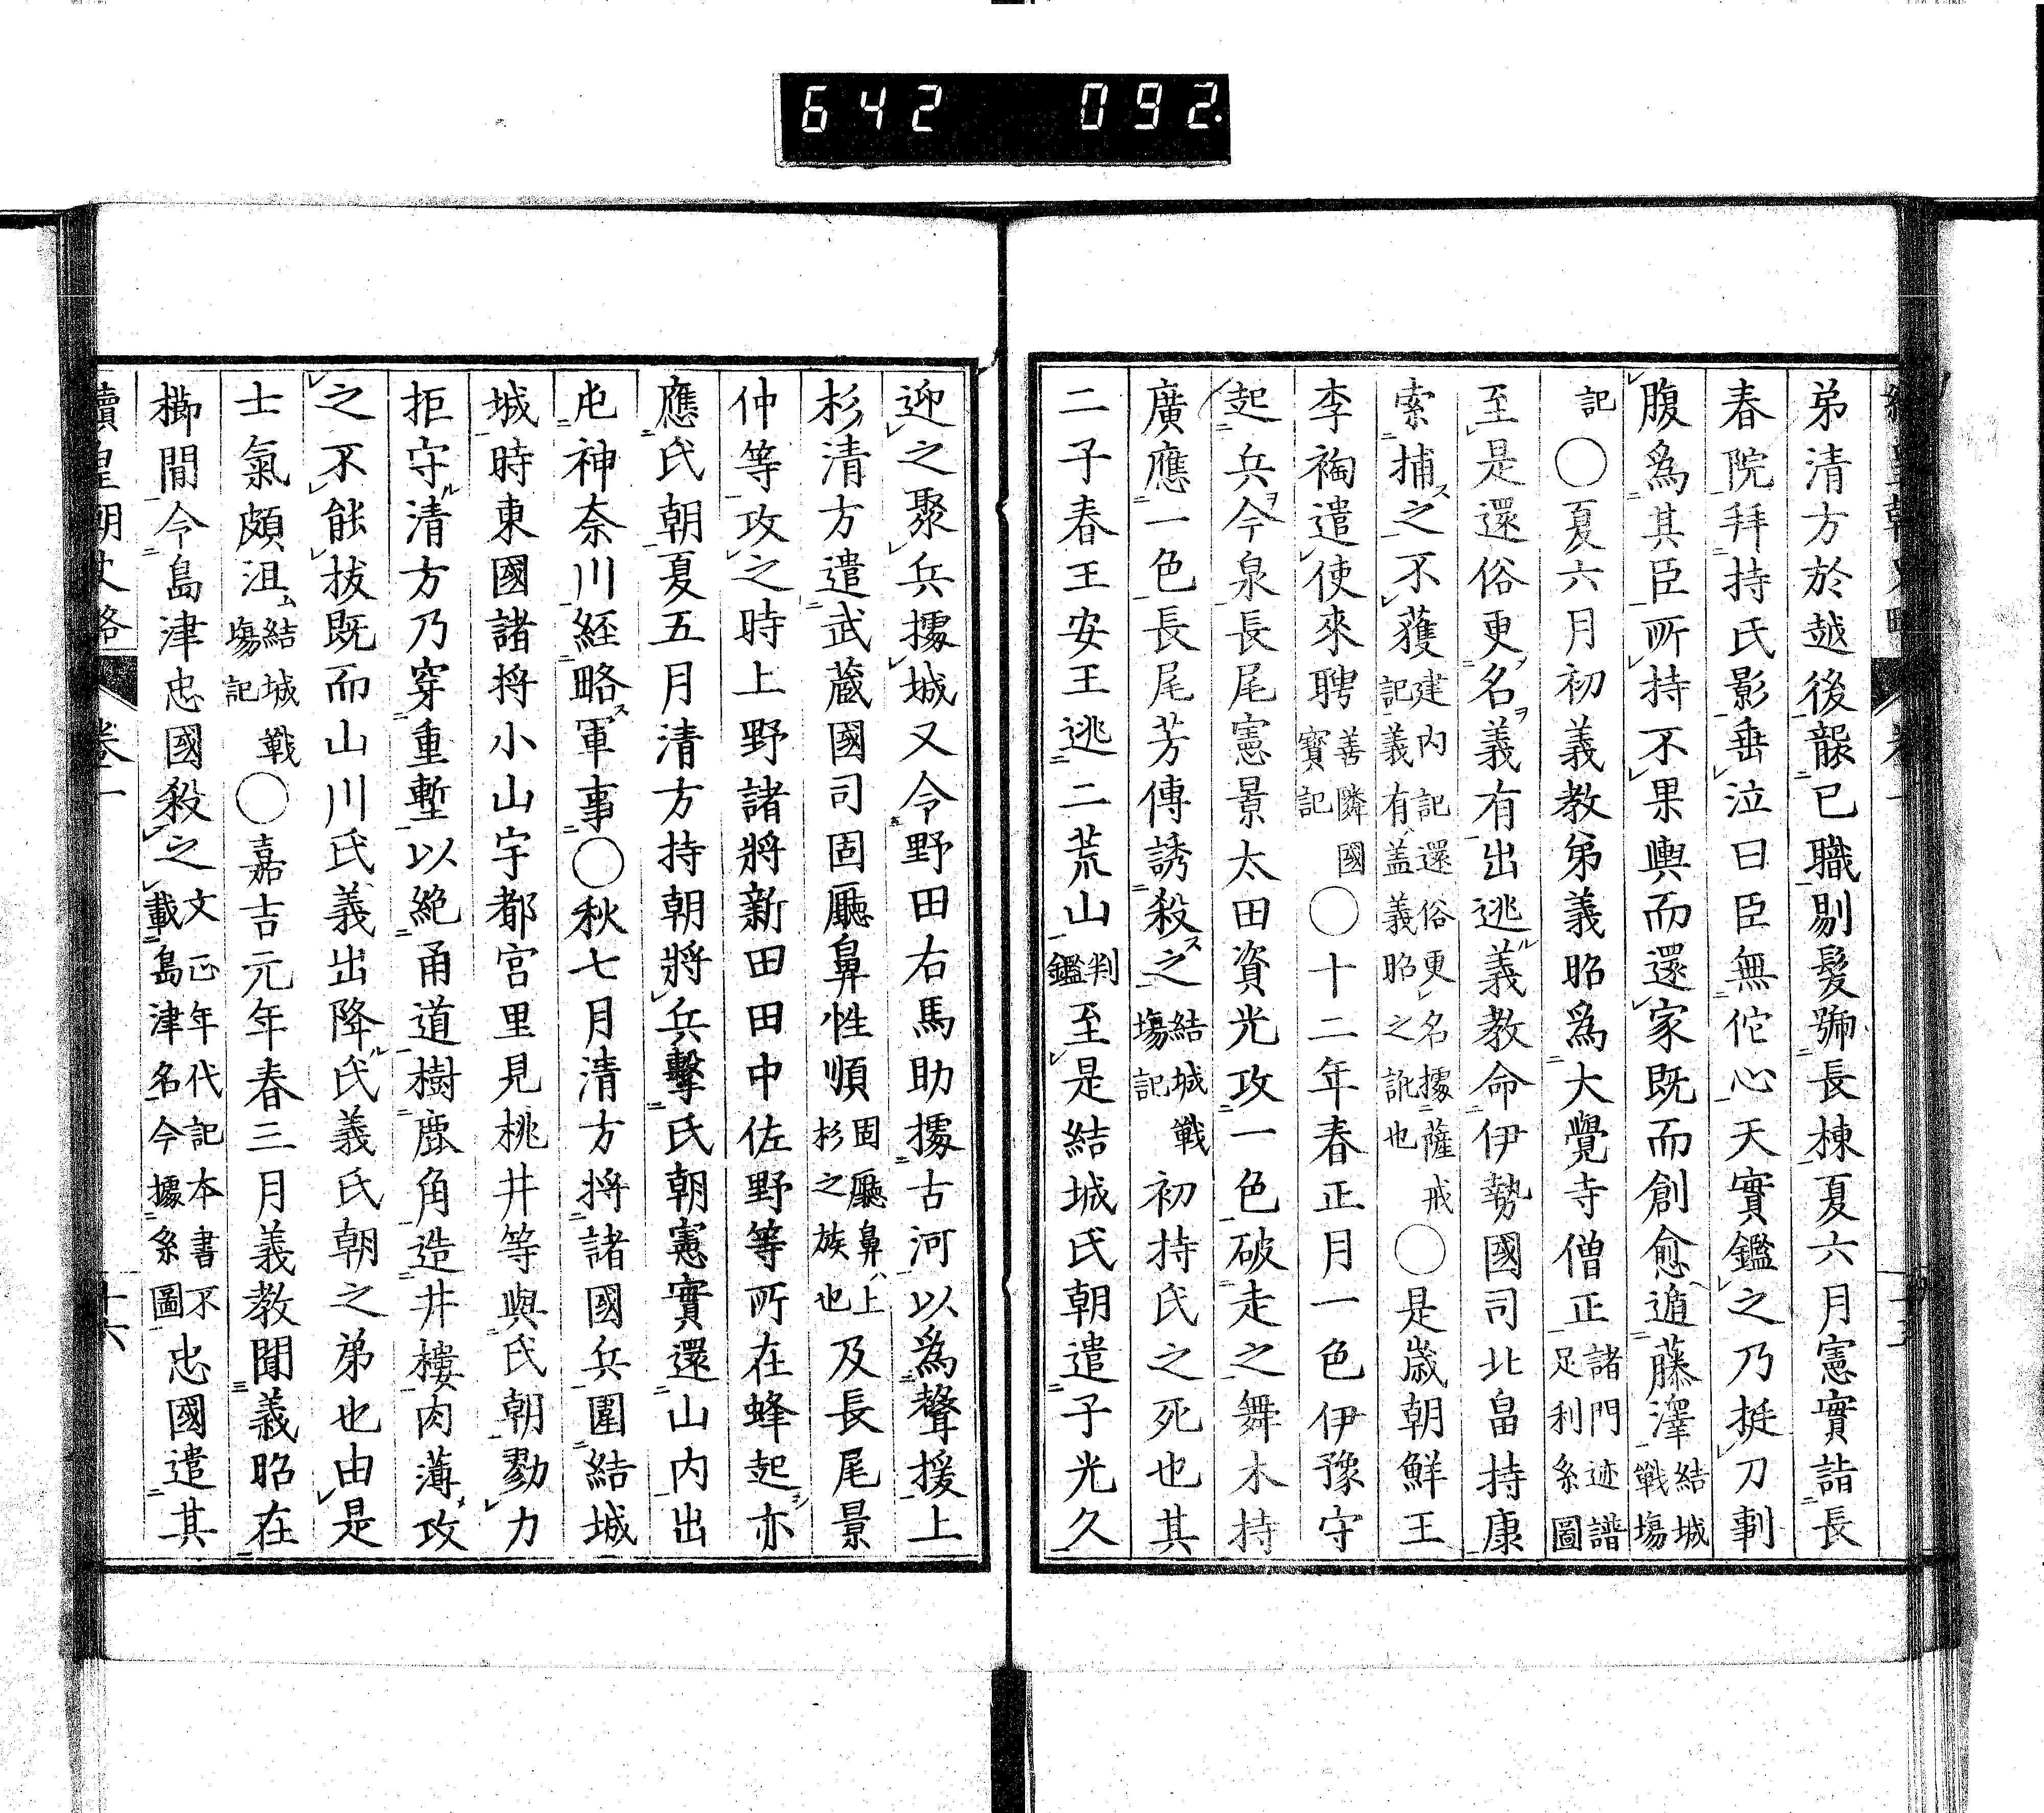 642 092.
弟清方於越後襲已職剔髮號長棟夏六月憲實詣長
春院拜持氏影垂泣曰臣無佗心天實鑑之乃挺刀剚
腹爲其臣所持不果輿而還家既而創愈遁藤澤結城戰場
記〇夏六月初義教弟義昭爲大覺寺僧正諸門迹譜足利系圖
至是還俗更名義有出逃義教命伊勢國司北畠持康
索捕之不獲建內記還俗更名據薩戒記義有盖義昭之訛也〇是歲朝鮮王
李裪遣使來聘善隣國寶記〇十二年春正月一色伊豫守
起兵今泉長尾憲景太田資光攻一色破走之舞木持
廣應一色長尾芳傳誘殺之結城戰場記初持氏之死也其
二子春王安王逃二荒山判鑑至是結城氏朝遣子光久
迎之聚兵據城又令野田右馬助據古河以爲聲援上
杉清方遣武藏國司固廳鼻性順固廳鼻上杉之族也及長尾景
仲等攻之時上野諸將新田田中佐野等所在蜂起亦
應氏朝夏五月清方持朝將兵擊氏朝憲實還山内出
屯神奈川經略軍事〇秋七月清方將諸國兵圍結城
城時東國諸將小山宇都宮里見桃井等與氏朝勠力
拒守清方乃穿重塹以絶甬道樹鹿角造井樓肉薄攻
之不能拔既而山川氏義出降氏義氏朝之弟也由是
士氣頗沮結城戰場記〇嘉吉元年春三月義教聞義昭在
櫛間令島津忠國殺之文正年代記本書不載島津名今據系圖忠國遣其
續皇朝史略 卷一 十六